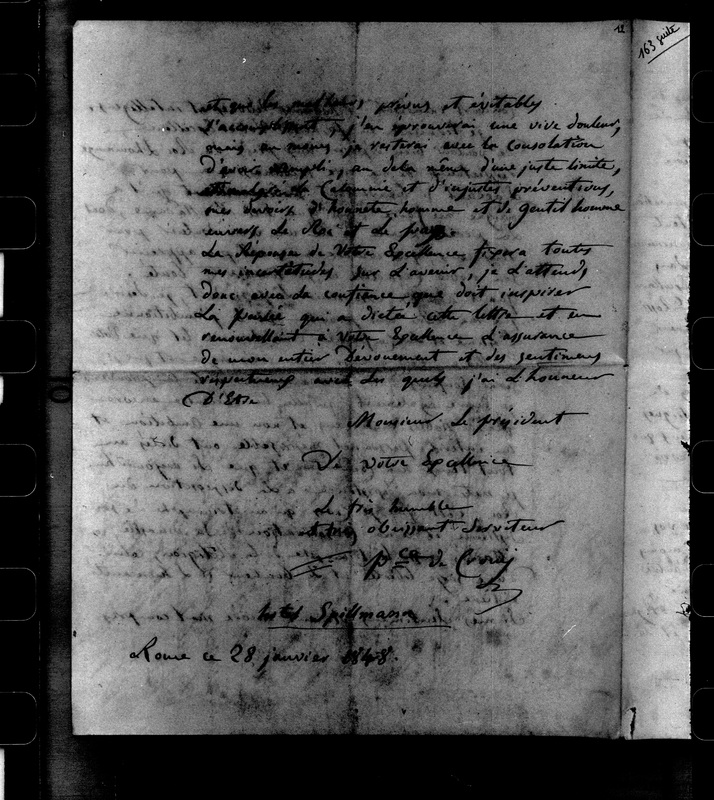 12
163 suite
les malheurs prévus et évitables
s'accomplissent, j'en éprouverai une vive douleur,
mais au moins je resterai avec la consolation
d'avoir rempli, au dela même d'une juste limite,
Calomnie et d'injustes préventions,
mes devoirs d'honnete homme et de gentilhomme
envers le Roi et le pays.
La Réponse de Votre Excellence fixera toutes
mes incertitudes sur l'avenir, je l'attends
donc avec la confiance que doit inspirer
La pensée qui a dicté cette lettre et en
renouvellant à Votre Excellence l'assurance
de mon entier Dévouement et des sentimens
respectueux avec les quels j'ai l'honneur
D'Etre
Monsieur Le président
De votre Excellence
Le très humble
et très obeissant serviteur
pce de
Spillmann
Rome ce 28 janvier 1848.